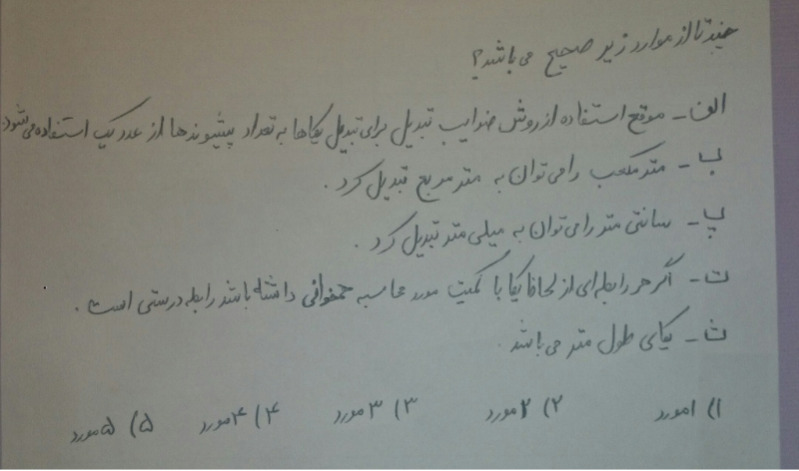 چندتا از موارد زیر صحیح می باشد؟
الف - موقع استفاده از روش ضرایب تبدیل برای تبدیل یکاها به تعداد پیشوندها از عدد یک استفاده می شود.
ب - متر مکعب را می توان به متر مربع تبدیل کرد.
پ - سانتی متر را می توان به میلی متر تبدیل کرد.
ت - اگر هر رابطه ای از لحاظ یکا با کمیت مورد محاسبه همخوانی داشته باشد رابطه درستی است.
ث - یکای طول متر می باشد.
۱) ۱مورد ۲) ۲مورد ۳) ۳مورد ۴) ۴مورد ۵) ۵مورد